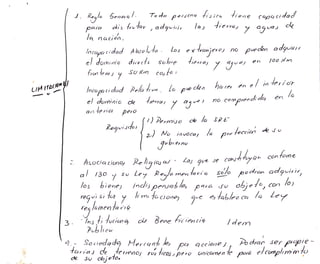 1. Regla General. Toda persona física tiene capacidad
para disfrutar, adquirir las tierras y aguas de
la nación.
Incapacidad Absoluta. Los extranjeros no pueden adquirir
el dominio directo sobre tierras y aguas en 100 km
fronteras y 50 km costa.
LIMITACIONES
Incapacidad Relativa. Lo pueden hacer en el interior
el dominio de tierras y aguas no comprendidas en lo
anterior pero
Requisitos 1) Permiso de la SRE
2) No invocar la protección de su
gobierno
2 Asociaciones Religiosas. Las que se constituyan conforme
al 130 y su Ley Reglamentaria sólo podrán adquirir,
los bienes indispensables para su objeto, con los
requisitos y limitaciones que establezca la Ley
reglamentaria
3. Instituciones de Beneficencia Idem
Pública
4.- Sociedades Mercantiles por acciones, Podrán ser propie-
tarias de terrenos rústicos, pero únicamente para el cumplimiento
de su objeto.